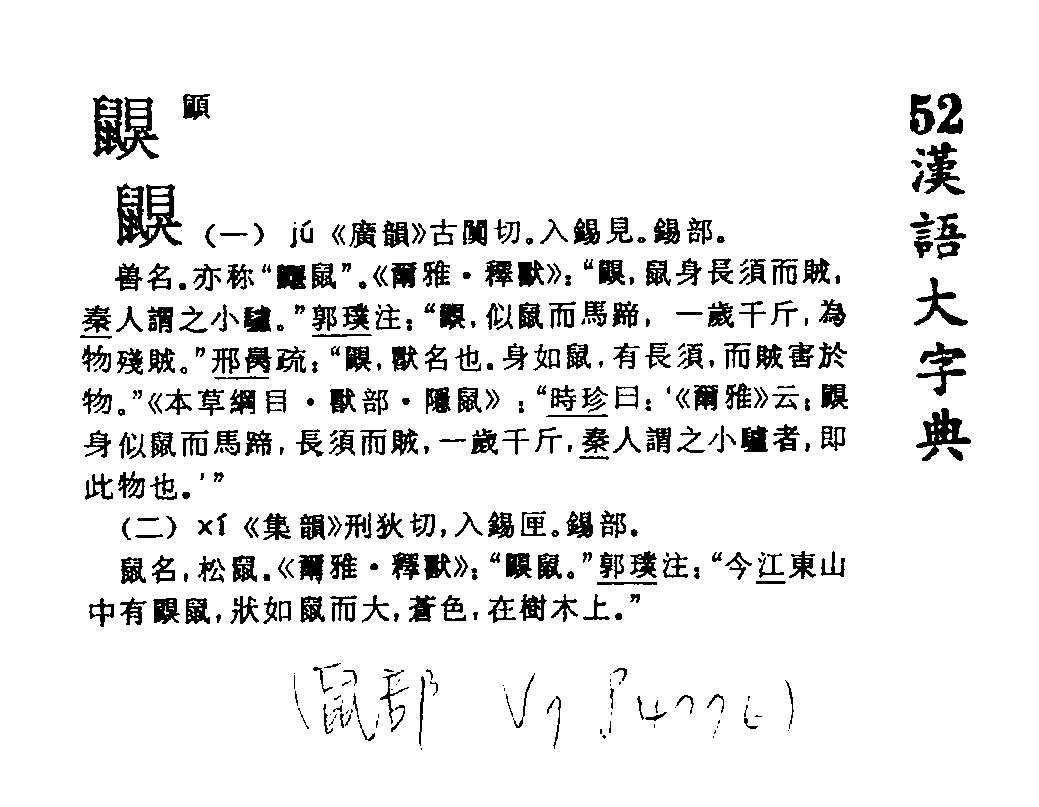 鼳
鼳 (一) jú《廣韻》古闃切。入錫見。錫部。
兽名。亦称“鼴鼠”。《爾雅·釋獸》：“鼳，鼠身長須而賊，
秦人謂之小驢。”郭璞注：“鼳，似鼠而馬蹄，一歲千斤，為
物殘賊。”邢昺疏：“鼳，獸名也。身如鼠，有長須，而賊害於
物。”《本草綱目·獸部·隱鼠》：“時珍曰：‘《爾雅》云：鼳
身似鼠而馬蹄，長須而賊，一歲千斤，秦人謂之小驢者，即
此物也。’”
(二) xí《集韻》刑狄切，入錫匣。錫部。
鼠名，松鼠。《爾雅·釋獸》：“鼳鼠。”郭璞注：“今江東山
中有鼳鼠，狀如鼠而大，蒼色，在樹木上。”
(鼠部 V7 P4776)
52漢語大字典